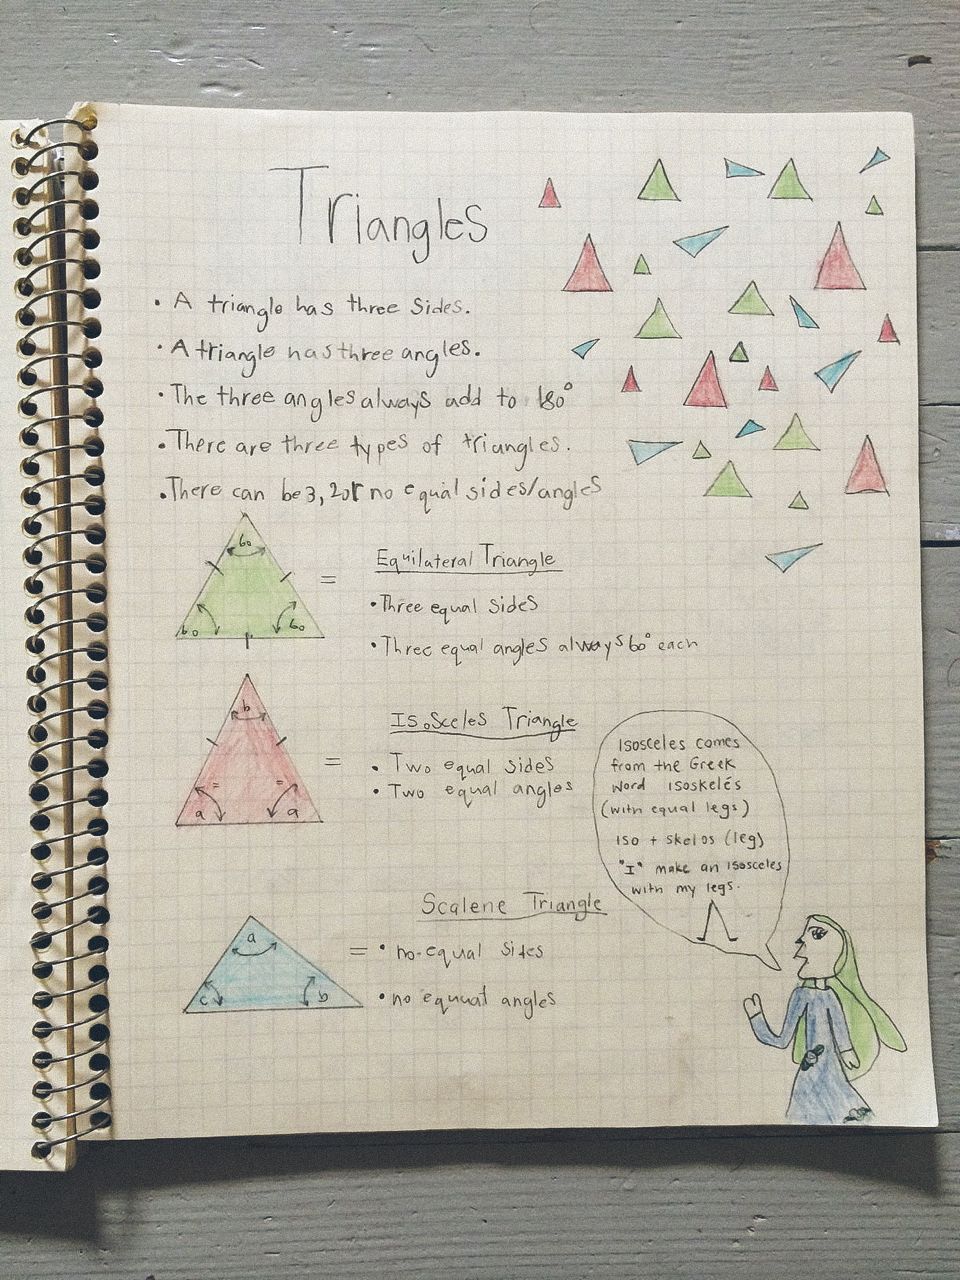 Triangles
• A triangle has three sides.
• A triangle has three angles.
• The three angles always add to 180°
• There are three types of triangles.
• There can be 3, 2 or no equal sides/angles
60
60
60
=
Equilateral Triangle
• Three equal sides
• Three equal angles always 60° each
b
a
a
=
Isosceles Triangle
• Two equal sides
• Two equal angles
Isosceles comes
from the Greek
word isoskelés
(with equal legs)
iso + skelos (leg)
"I" make an isosceles
with my legs.
a
c
b
Scalene Triangle
= • no equal sides
• no equal angles